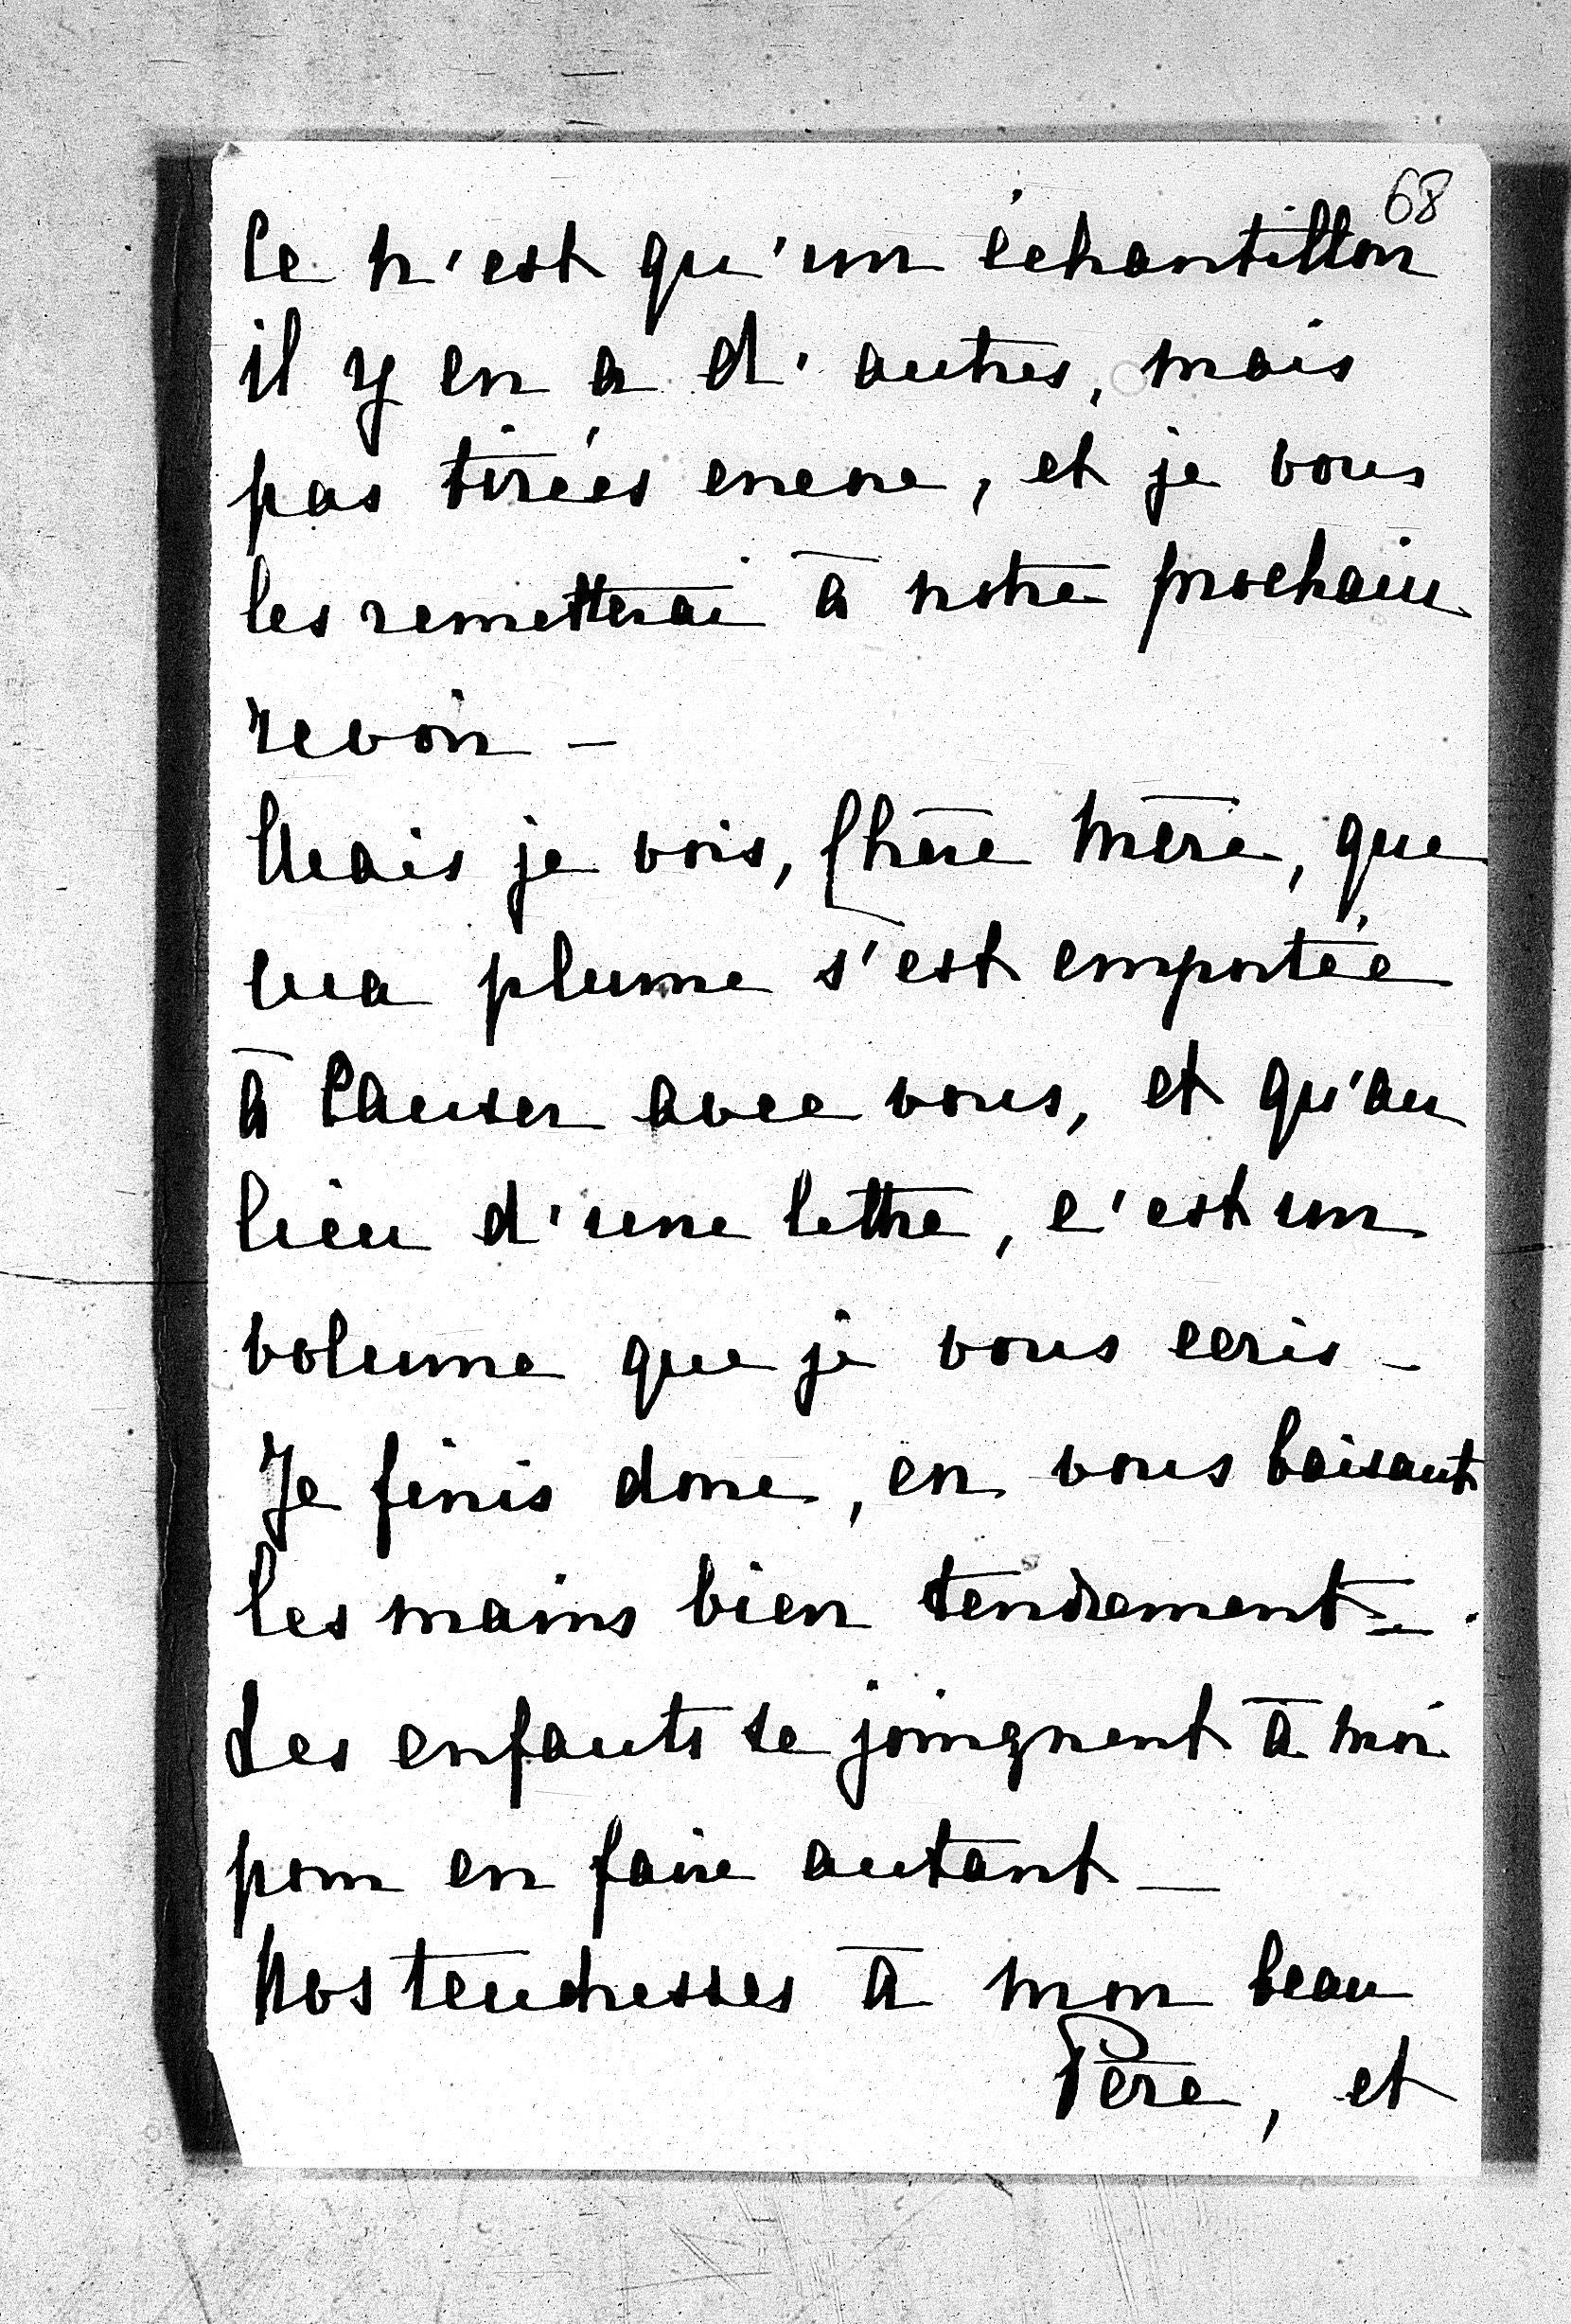 68
Ce n'est qu'un échantillon
il y en a d'autres, mais
pas tirées encore, et je vous
les remetterai à notre prochain
revoir –
Mais je vois, Chère Mère, que
ma plume s'est emportée
à causer avec vous, et qu'au
lieu d'une lettre, c'est un
volume que je vous ecris –
Je finis donc, en vous baisant
les mains bien tendrement –
Les enfants se joignent à moi
pour en faire autant –
Nos tendresses à mon beau
Père, et